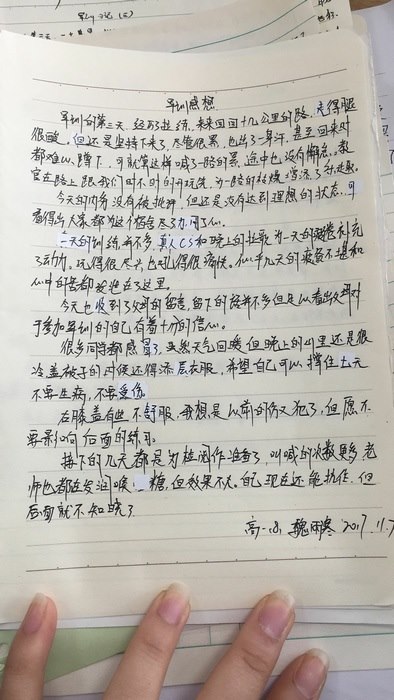 军训感想
军训的第三天,经历了拉练,来来回回十几公里的路,走得腿
很酸。但还是坚持下来了,尽管很累,也出了一身汗,甚至回来时
都难以蹲下,可就算这样喊了一路的累,途中也没有懈怠,教
官在路上跟我们时不时的开玩笑,为一路的枯燥增添了乐趣。
今天的内务没有被批评,但还是没有达到理想的状态,可
看得出大家都为这个宿舍尽了力,用了心。
一天的训练并不多,真人CS和晚上的拉歌为一天的疲惫补充
了动力。玩得很尽兴,也吼得很痛快。似乎几天的疲惫不堪和
心中的苦都发泄在了这里。
今天也收到了妈的留言,留下的话并不多但足以看出妈对
于参加军训的自己有着十分的信心。
很多同学都感冒了,虽然天气回暖但晚上的山里还是很
冷,盖被子的时候还得添层衣服,希望自己可以撑住七天
不要生病,不要受伤。
右膝盖有些不舒服,我想是以前的伤又犯了,但愿不
要影响后面的练习。
接下的几天都是为检阅作准备了,叫喊的次数更多,老
师也都在发润喉糖,但效果不大。自己现在还能抗住,但
后面就不知晓了。
高一(8) 魏雨寒 2017.11.7